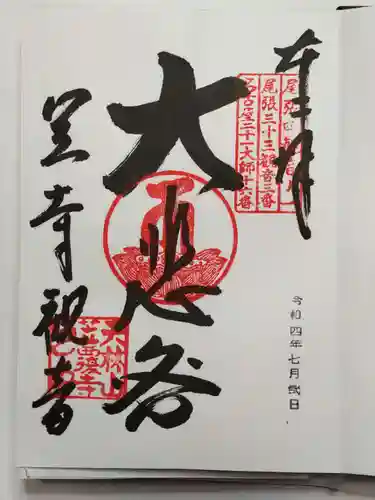 奉拝
尾張四観音
尾張三十三観音三番
名古屋二十一大師十六番
大悲閣
笠寺観音
天林山
笠覆寺
令和四年七月弐日